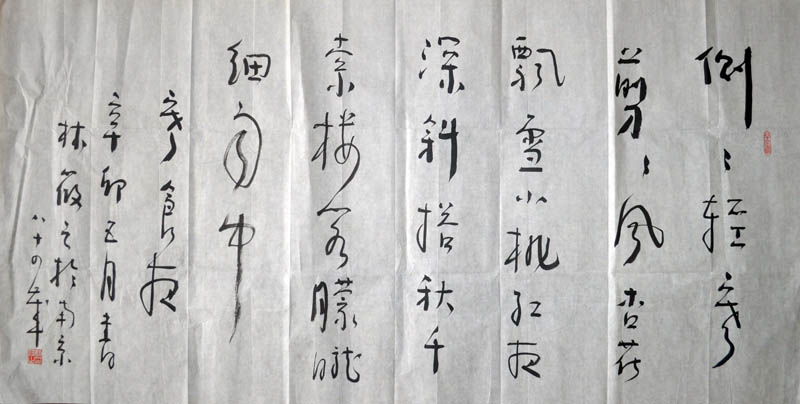 侧〻轻寒
剪〻风杏花
飘雪小桃红夜
深斜搭秋千
索楼阁朦胧
细雨中
寒食夜
辛卯五月书
林筱之於南京
八十四岁年